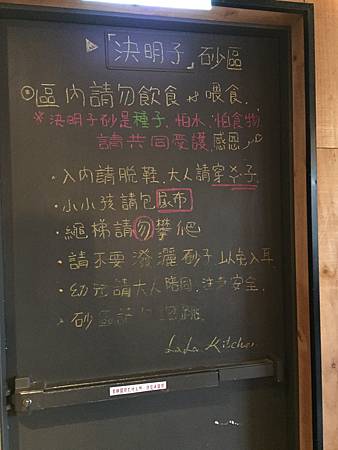 ▶「決明子」砂區
⊙區內請勿飲食、喂食.
※決明子砂是種子,怕水、怕食物
請共同愛護,感恩
・入內請脫鞋,大人請穿ㄨ子.
・小小孩請包尿布
・繩梯請勿攀爬
・請不要潑灑砂子以免入耳
・幼兒請大人陪同,注意安全.
・砂區請勿跑跳.
LaLa Kitchen